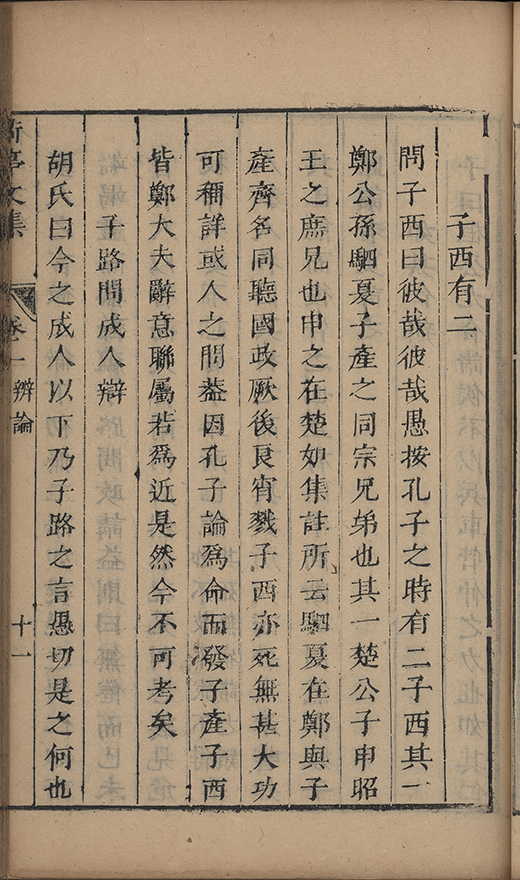 子西有二
問子西曰彼哉彼哉愚按孔子之時有二子西其一
鄭公孫駟夏子產之同宗兄弟也其一楚公子申昭
王之庶兄也申之在楚如集註所云駟夏在鄭與子
產齊名同聽國政厥後良宵戮子西亦死無甚大功
可稱詳或人之問葢因孔子論爲命而發子產子西
皆鄭大夫辭意聯屬若爲近是然今不可考矣
子路問成人辯
胡氏曰今之成人以下乃子路之言愚切是之何也
亭文集
卷一
辨論
十一